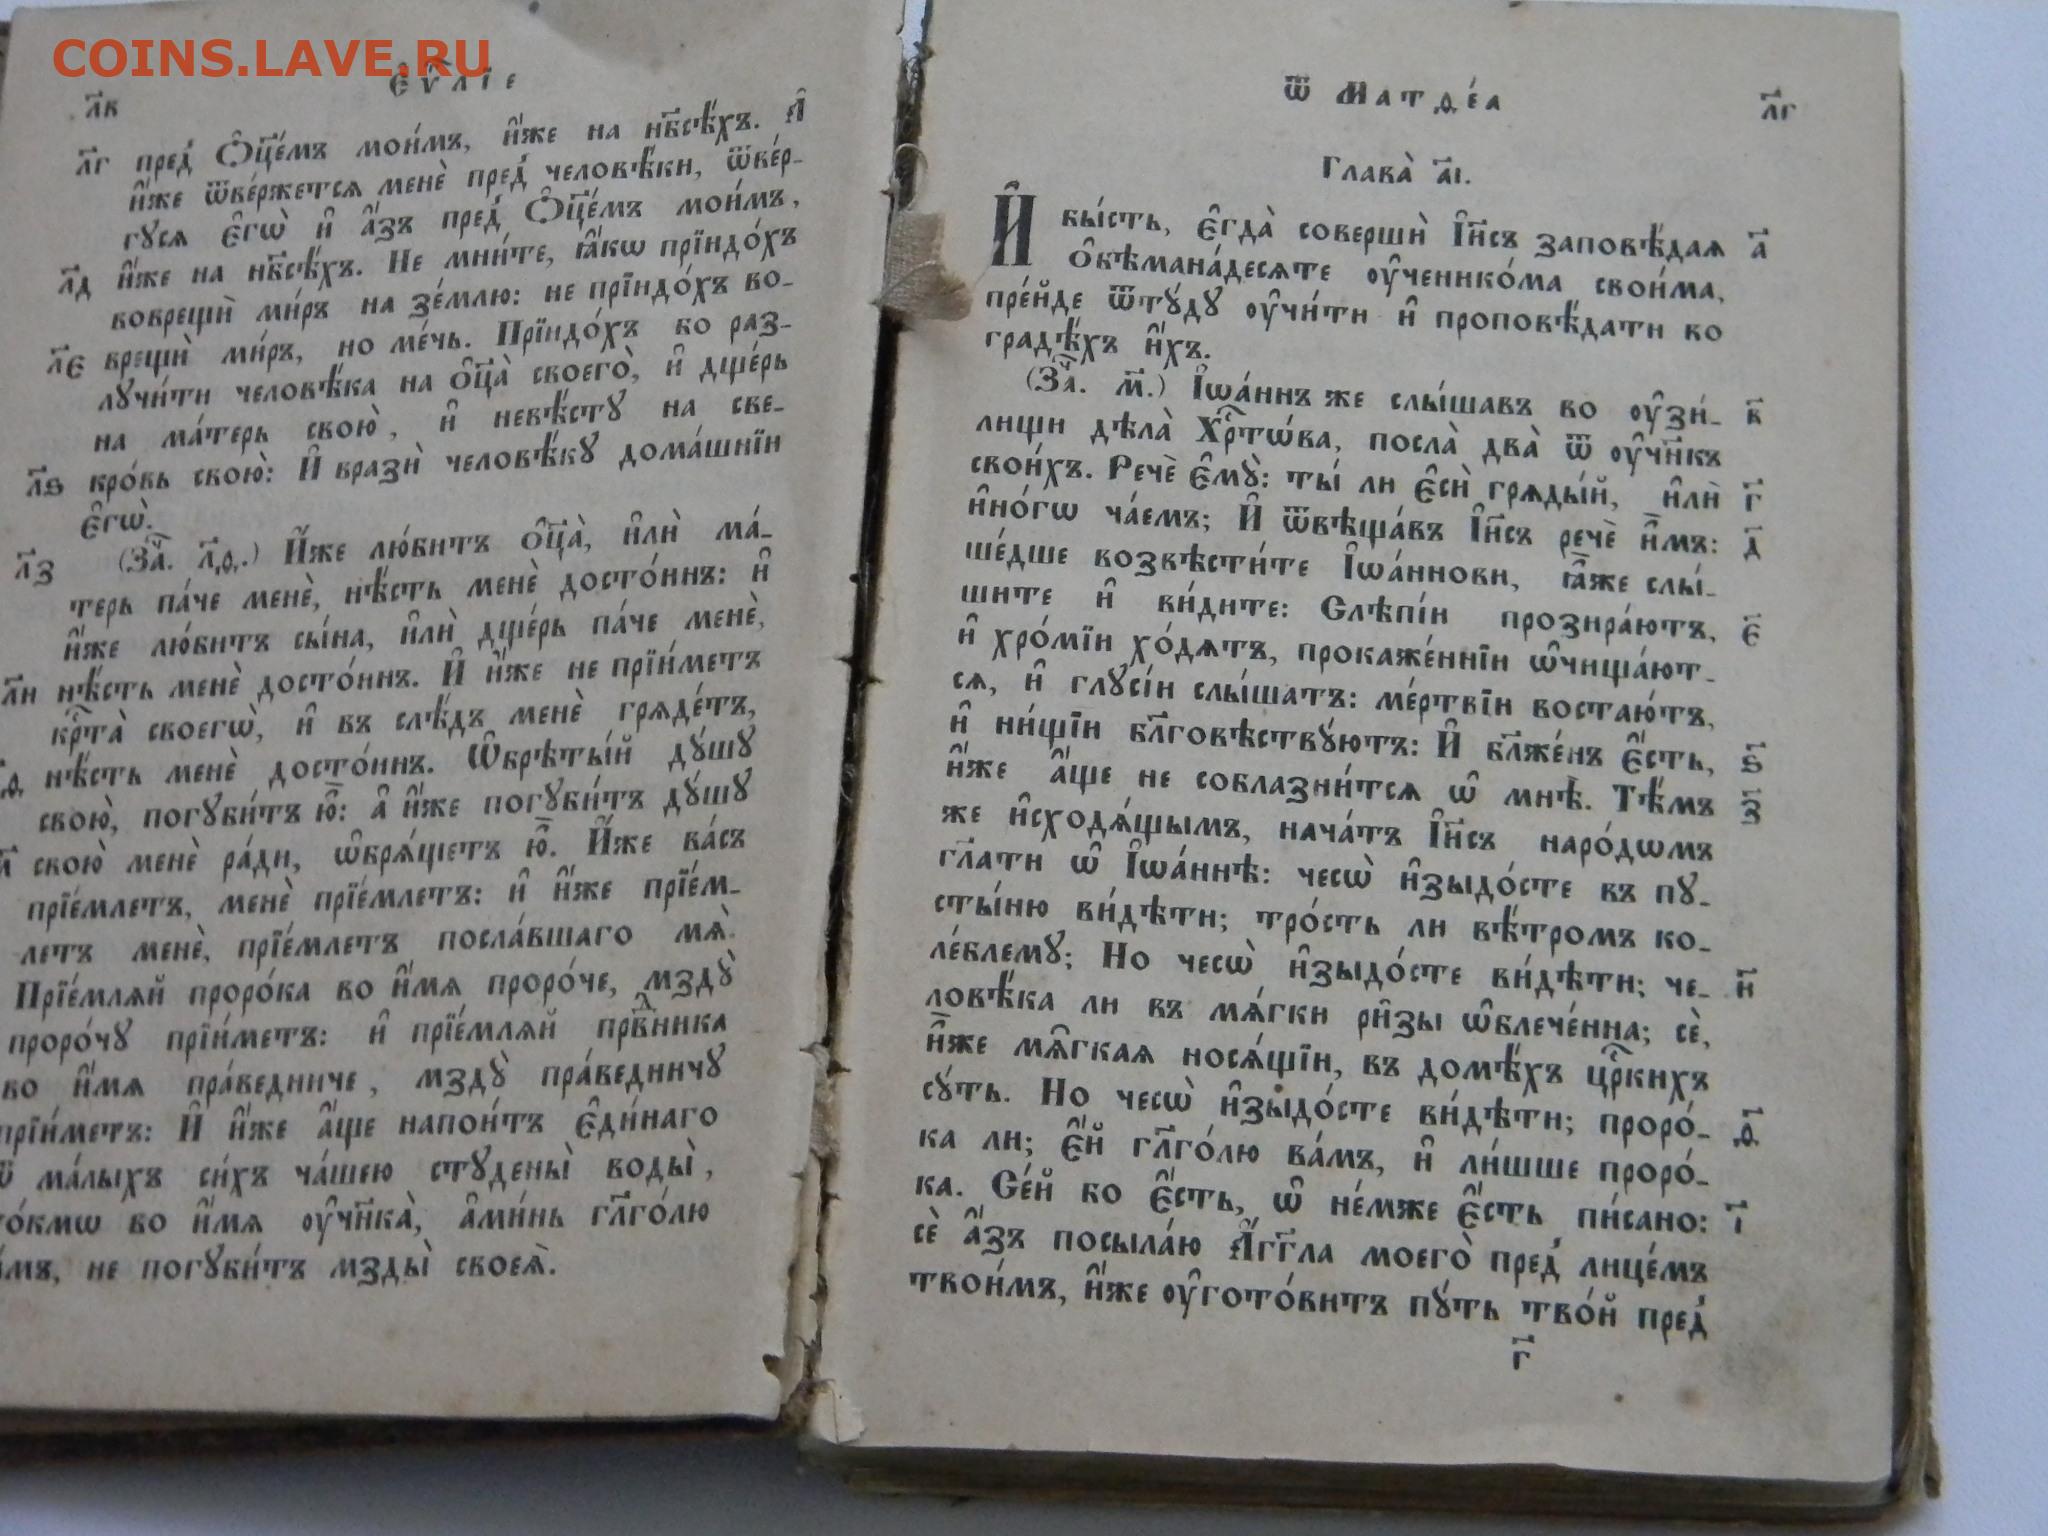 COINS.LAVE.RU
Є҆ѵⷢ҇лїе
л҃в
пред̾ Ѻ҆ц҃е́мъ мои́мъ, и҆́же на нб҃сѣ́хъ. А҆
л҃г и҆́же ѿве́ржетсѧ менѐ пред̾ человѣ́ки, ѿве́р-
гꙋсѧ є҆гѡ̀ и҆ а҆́зъ пред̾ Ѻ҆ц҃е́мъ мои́мъ,
л҃д и҆́же на нб҃сѣ́хъ. Не мни́те, ꙗ҆́кѡ прїидо́хъ
воврещѝ ми́ръ на зе́млю: не прїидо́хъ во-
л҃є врещѝ ми́ръ, но ме́чь. Прїидо́хъ бо раз-
лꙋчи́ти человѣ́ка на ѻ҆ц҃а̀ своего̀, и҆ дще́рь
на ма́терь свою̀, и҆ невѣ́стꙋ на све-
л҃ѕ кро́вь свою̀: И҆ вразѝ человѣ́кꙋ дома́шнїи
є҆гѡ̀.
л҃з (Заⷱ҇. л҃ѳ.) И҆́же лю́битъ ѻ҆ц҃а̀, и҆лѝ ма́-
терь па́че менѐ, нѣ́сть менѐ досто́инъ: и҆
и҆́же лю́битъ сы́на, и҆лѝ дще́рь па́че менѐ,
л҃и нѣ́сть менѐ досто́инъ. И҆ и҆́же не прїи́метъ
крⷭ҇та̀ своегѡ̀, и҆ въ слѣ́дъ менѐ грѧде́тъ,
л҃ѳ нѣ́сть менѐ досто́инъ. Ѡ҆брѣты́й дꙋ́шꙋ
свою̀, погꙋби́тъ ю҆̀: а҆ и҆́же погꙋби́тъ дꙋ́шꙋ
м҃ свою̀ менѐ ра́ди, ѡ҆брѧ́щетъ ю҆̀. И҆́же ва́съ
прїе́млетъ, менѐ прїе́млетъ: и҆ и҆́же прїе́м-
летъ менѐ, прїе́млетъ посла́вшаго мѧ̀.
Прїе́млѧй проро́ка во и҆́мѧ проро́че, мздꙋ̀
проро́чꙋ прїи́метъ: и҆ прїе́млѧй првⷣника
во и҆́мѧ пра́ведниче, мздꙋ̀ пра́ведничꙋ
прїи́метъ: И҆ и҆́же а҆́ще напои́тъ є҆ди́наго
ѿ ма́лыхъ си́хъ ча́шею стꙋдены̀ воды̀,
то́кмѡ во и҆́мѧ ᲂу҆чн҃ка̀, а҆ми́нь гл҃го́лю
ва́мъ, не погꙋби́тъ мзды̀ своеѧ̀.
ѿ Матѳе́а
л҃г
Глава̀ а҃і.
И҆ бы́сть, є҆гда̀ совершѝ І҆и҃съ заповѣ́даѧ а҃
ѻ҆бѣмана́десѧте ᲂу҆ченико́ма свои́ма,
пре́йде ѿтꙋ́дꙋ ᲂу҆чи́ти и҆ проповѣ́дати во
градѣ́хъ и҆́хъ.
(Заⷱ҇. м҃.) І҆ѡа́ннъ же слы́шавъ во ᲂу҆зи́- в҃
лищи дѣла̀ Хрⷭ҇тѡ́ва, посла̀ два̀ ѿ ᲂу҆чн҃къ
свои́хъ. Речѐ є҆мꙋ̀: ты́ ли є҆сѝ грѧды́й, и҆лѝ г҃
и҆но́гѡ ча́емъ; И҆ ѿвѣща́въ І҆и҃съ речѐ и҆̀мъ: д҃
ше́дше возвѣсти́те І҆ѡа́ннови, ꙗ҆̀же слы́-
шите и҆ ви́дите: Слѣпі́и прозира́ютъ, є҃
и҆ хро́мїи хо́дѧтъ, прокаже́ннїи ѡ҆чища́ют-
сѧ, и҆ глꙋсі́и слы́шатъ: ме́ртвїи востаю́тъ,
и҆ ни́щїи бл҃говѣствꙋ́ютъ: И҆ бл҃же́нъ є҆́сть, ѕ҃
и҆́же а҆́ще не соблазни́тсѧ ѡ҆ мнѣ̀. Тѣ́мъ з҃
же и҆сходѧ́щымъ, нача́тъ І҆и҃съ наро́дѡмъ
гл҃ати ѡ҆ І҆ѡа́ннѣ: чесѡ̀ и҆зыдо́сте въ пꙋ-
сты́ню ви́дѣти; тро́сть ли вѣ́тромъ ко-
ле́блемꙋ; Но чесѡ̀ и҆зыдо́сте ви́дѣти; че- и҃
ловѣ́ка ли въ мѧ́гки ри̑зы ѡ҆блече́нна; сѐ,
и҆̀же мѧ̑гкаѧ носѧ́щїи, въ домѣ́хъ црⷭ҇кихъ
сꙋ́ть. Но чесѡ̀ и҆зыдо́сте ви́дѣти; проро́- ѳ҃
ка ли; є҆́й гл҃го́лю ва́мъ, и҆ ли́шше проро́-
ка. Се́й бо є҆́сть, ѡ҆ не́мже є҆́сть пи́сано: і҃
сѐ а҆́зъ посыла́ю А҆́гг҃ла моего̀ пред̾ лице́мъ
твои́мъ, и҆́же ᲂу҆гото́витъ пꙋ́ть тво́й пред̾
г҃